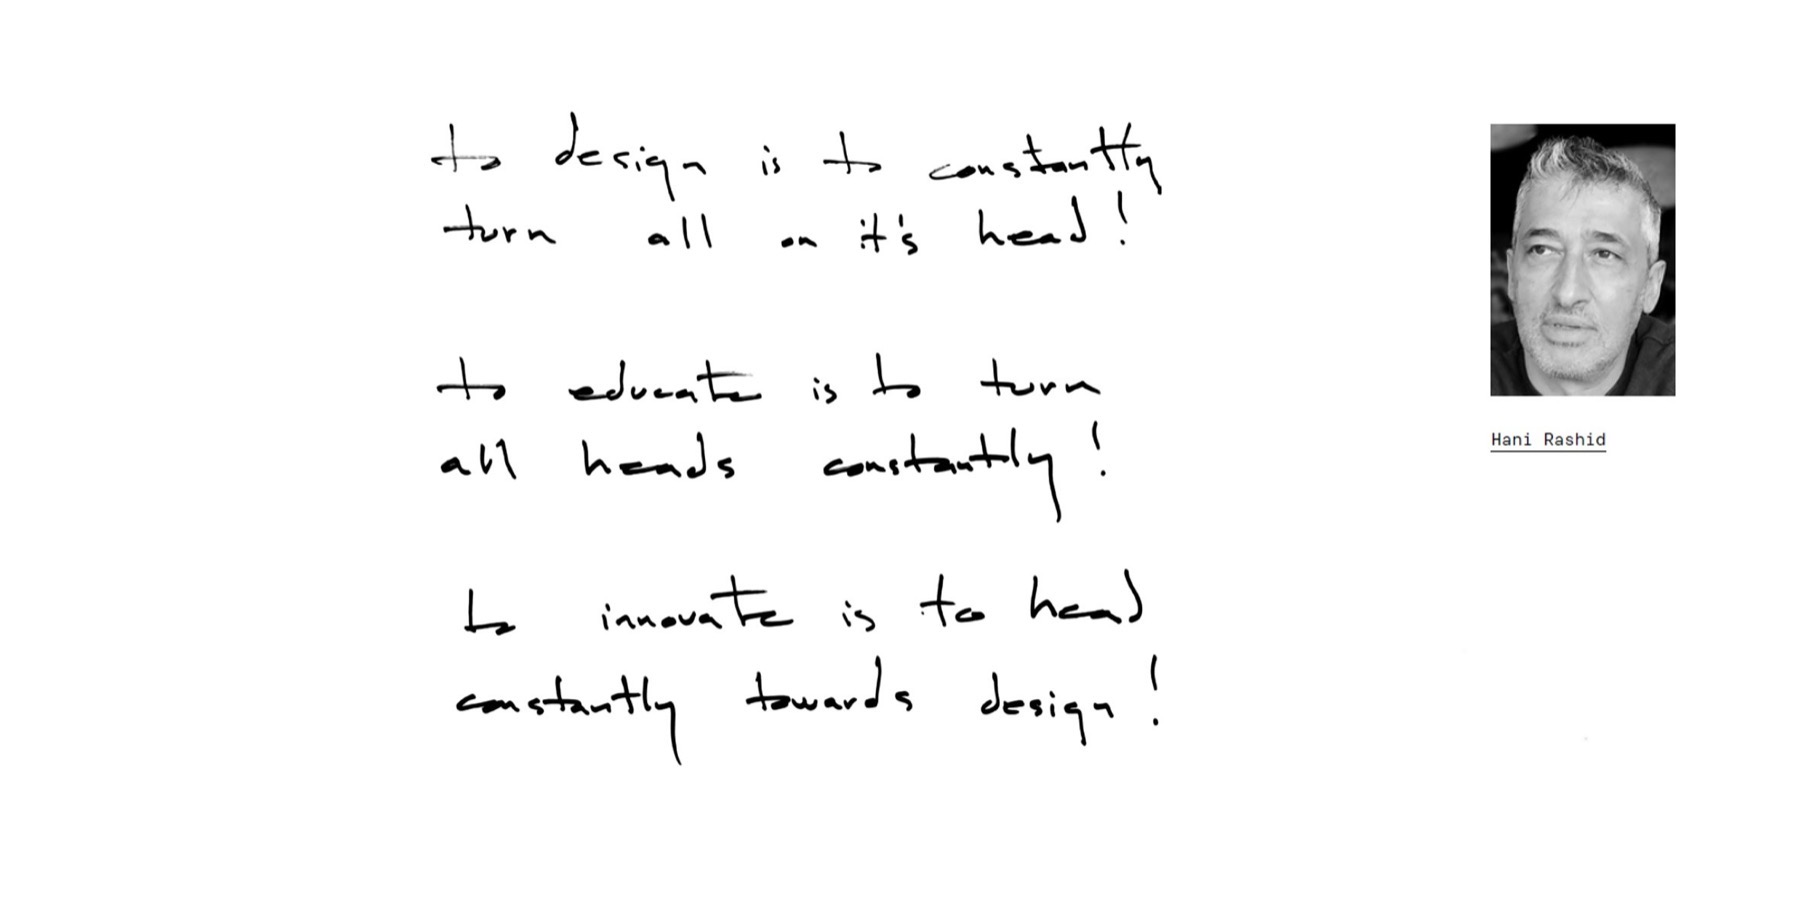 to design is to constantly
turn all on it's head!
to educate is to turn
all heads constantly!
to innovate is to head
constantly towards design!
Hani Rashid